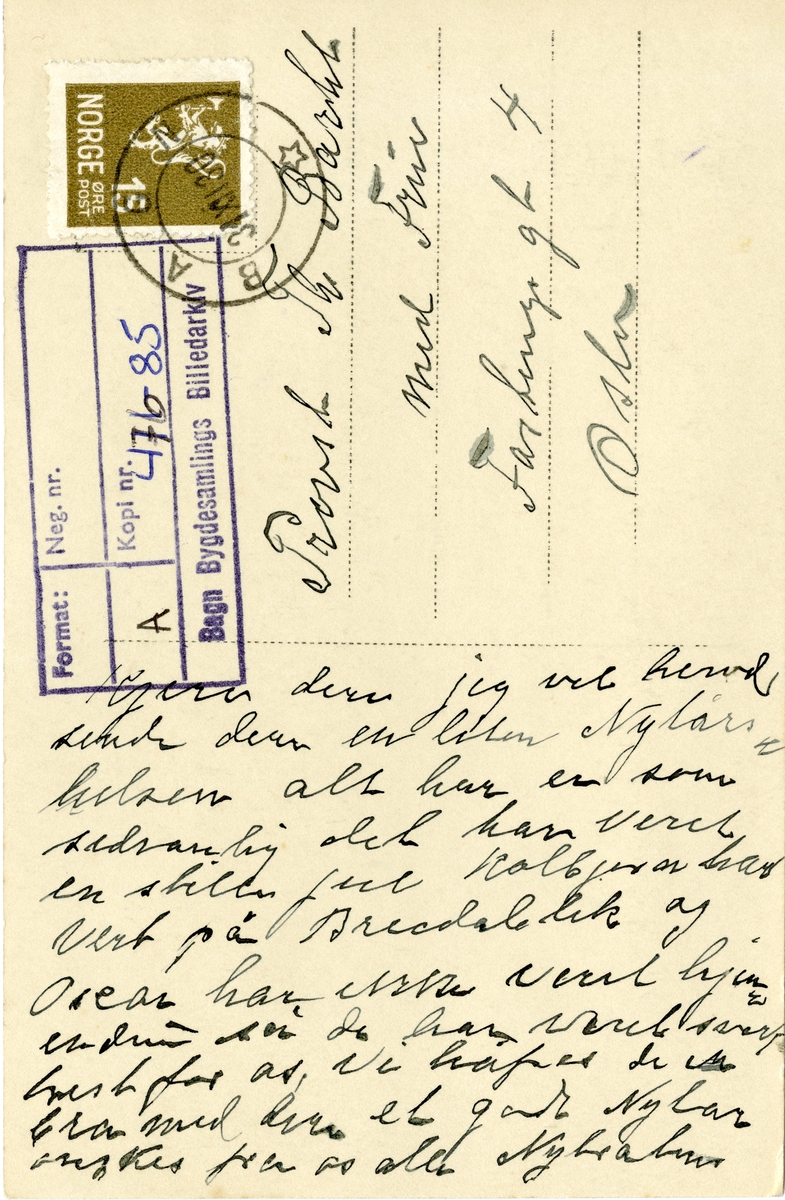 NORGE
15 ØRE
POST
BA
Format:
Neg. nr.
Kopi nr.
476-85
A
Bagn Bygdesamlings Billedarkiv
Provst Th
med Frue
4
Oslo
Kjere dere jeg vel
sende dere en liten Nytårs
helsen alt her er som
sedvanlig det har veret
en stille jul Kolbjørn har
vert på og
Oscar har ikke veret hjem
endnu så de har veret
for os, Vi håpes de er
bra med dere et godt Nytår
ønskes fra os alle